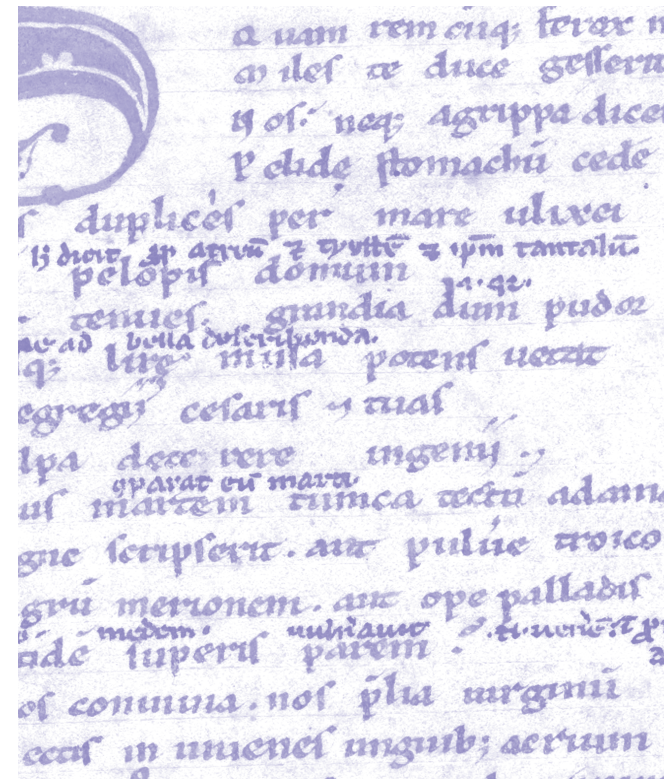 Q uam rem cūq; ferox n
Miles te duce gesserit
N os. neq; agrippa dice
P elidę stomachū cede
s duplicęs per mare ulixei
h dicit ꝓpt atreū ⁊ tyestē ⁊ ipm tantalū.
pelopis domum
tenues. grandia dum pudor
me ad bella describenda.
q; lirę musa potens uetat
egregij cesaris ⁊ tuas
lpa detere uere ingenij.
ꝯparat eū marti.
uis martem tunica tectū adama
gne scripserit. aut puluere troico
grū merionem. aut ope palladis
tidē superis parem.
es conuiuia. nos p̄lia uirginū
ectis in iuuenes unguib; acrium